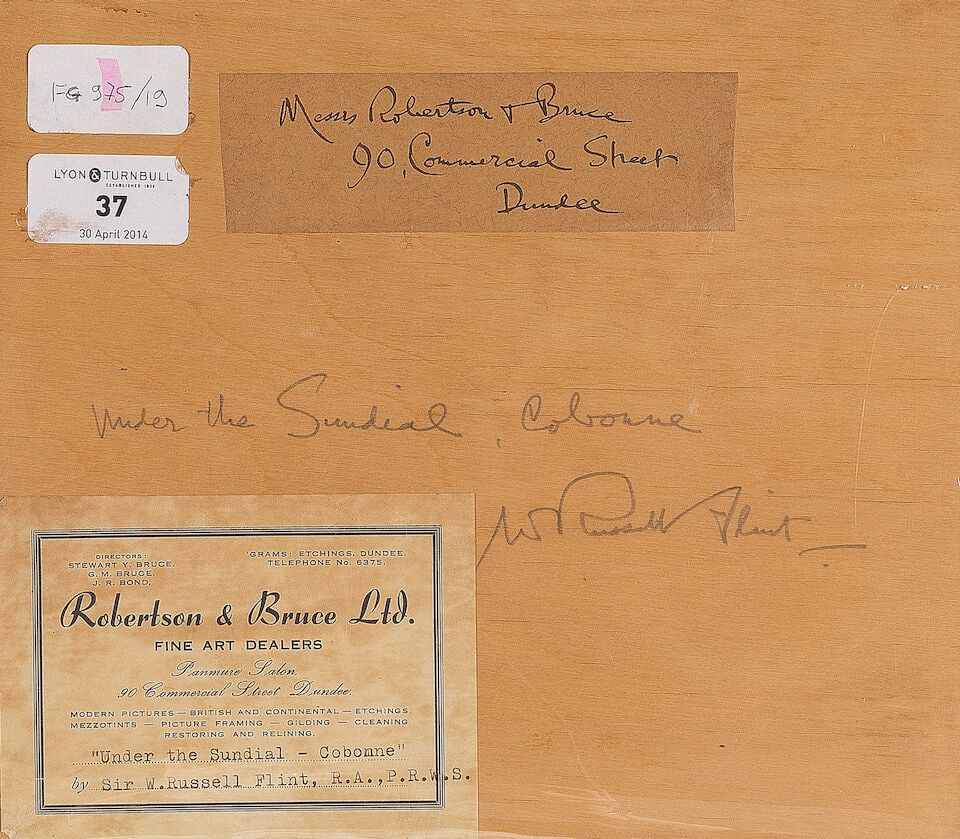 FG 975/19
LYON & TURNBULL
ESTABLISHED 1826
37
30 April 2014
Messrs Robertson & Bruce
90, Commercial Street
Dundee
Under the Sundial, Cobonne
W Russell Flint
DIRECTORS:
STEWART Y. BRUCE.
G. M. BRUCE.
J. R. BOND.
'GRAMS: ETCHINGS, DUNDEE.
TELEPHONE No. 6375.
Robertson & Bruce Ltd.
FINE ART DEALERS
Panmure Salon,
90 Commercial Street Dundee.
MODERN PICTURES — BRITISH AND CONTINENTAL — ETCHINGS
MEZZOTINTS — PICTURE FRAMING — GILDING — CLEANING
RESTORING AND RELINING.
"Under the Sundial - Cobonne"
by Sir W.Russell Flint, R.A.,P.R.W.S.